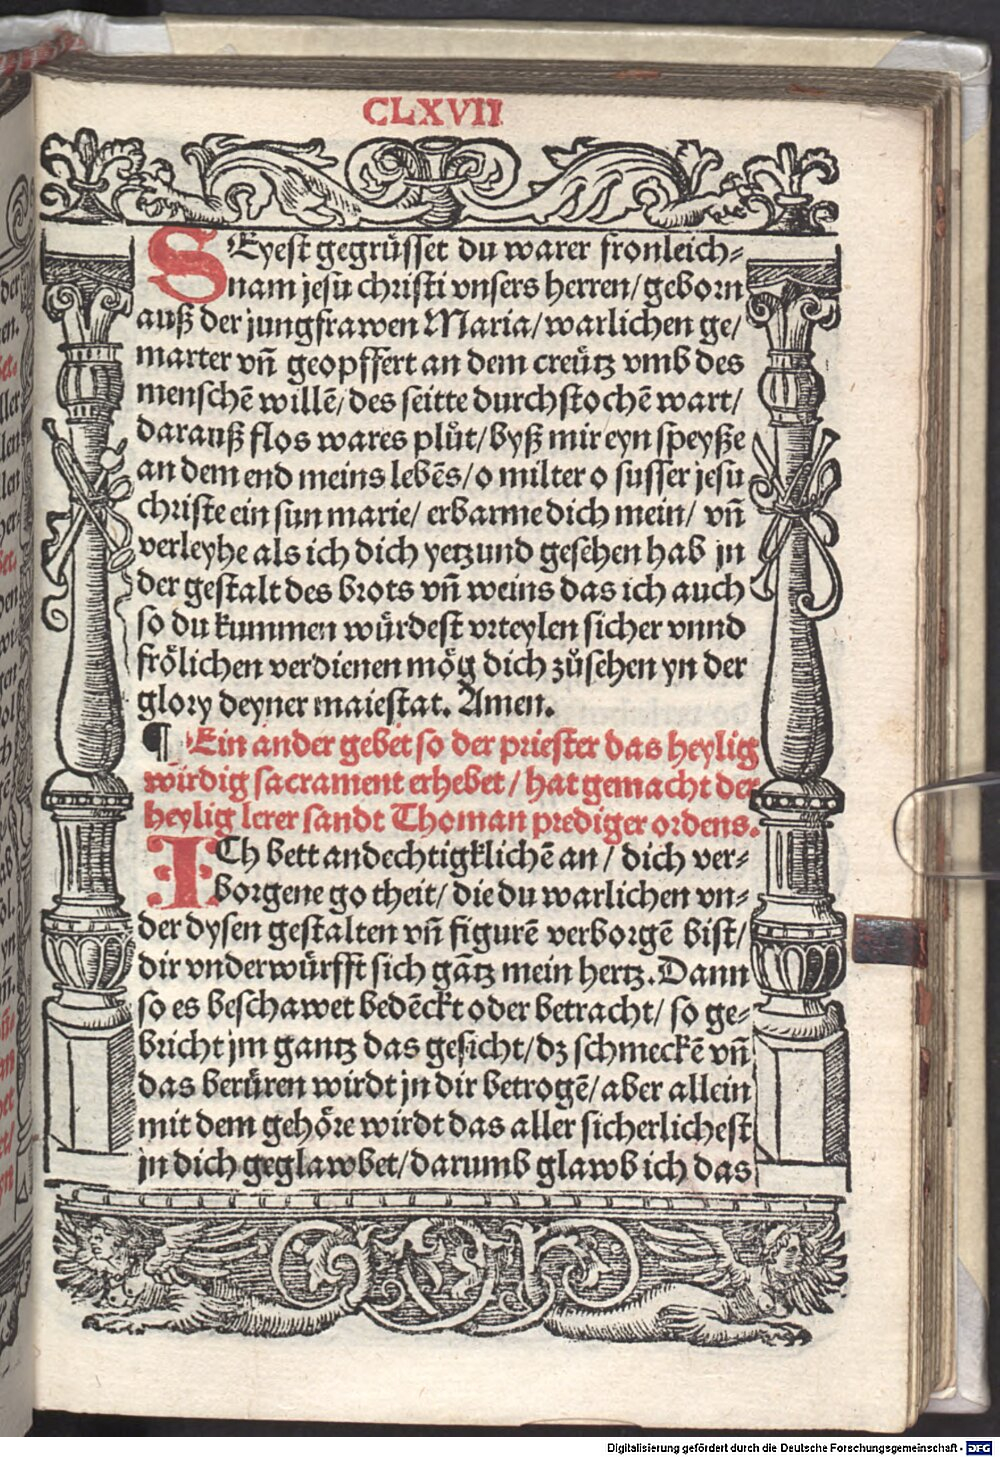 CLXVII
SEyest gegrüsset du warer fronleich⸗
nam jesu christi vnsers herren/geborn
auß der jungfrawen Maria/warlichen ge/
marter vn̄ geopffert an dem creütz vmb des
menschē willē/des seitte durchstochē wart/
darauß flos wares plůt/byß mir eyn speyße
an dem end meins lebēs/o milter o susser jesu
christe ein sun marie/ erbarme dich mein/ vn̄
verleyhe als ich dich yetzund gesehen hab jn
der gestalt des brots vn̄ weins das ich auch
so du kummen würdest vrteylen sicher vnnd
frölichen verdienen mög dich zůsehen yn der
glory deyner maiestat. Amen.
¶ Ein ander gebet so der priester das heylig
wirdig sacrament erhebet/ hat gemacht der
heylig lerer sandt Thoman prediger ordens.
ICh bett andechtigklichē an/ dich ver⸗
borgene go theit/ die du warlichen vn⸗
der dysen gestalten vn̄ figurē verborgē bist/
dir vnderwürfft sich gātz mein hertz. Dann
so es beschawet bedēckt oder betracht/ so ge⸗
bricht jm gantz das gesicht/dz schmeckē vn̄
das berüren wirdt jn dir betrogē/aber allein
mit dem gehöre wirdt das aller sicherlichest
jn dich geglawbet/darumb glawb ich das
Digitalisierung gefördert durch die Deutsche Forschungsgemeinschaft - DFG